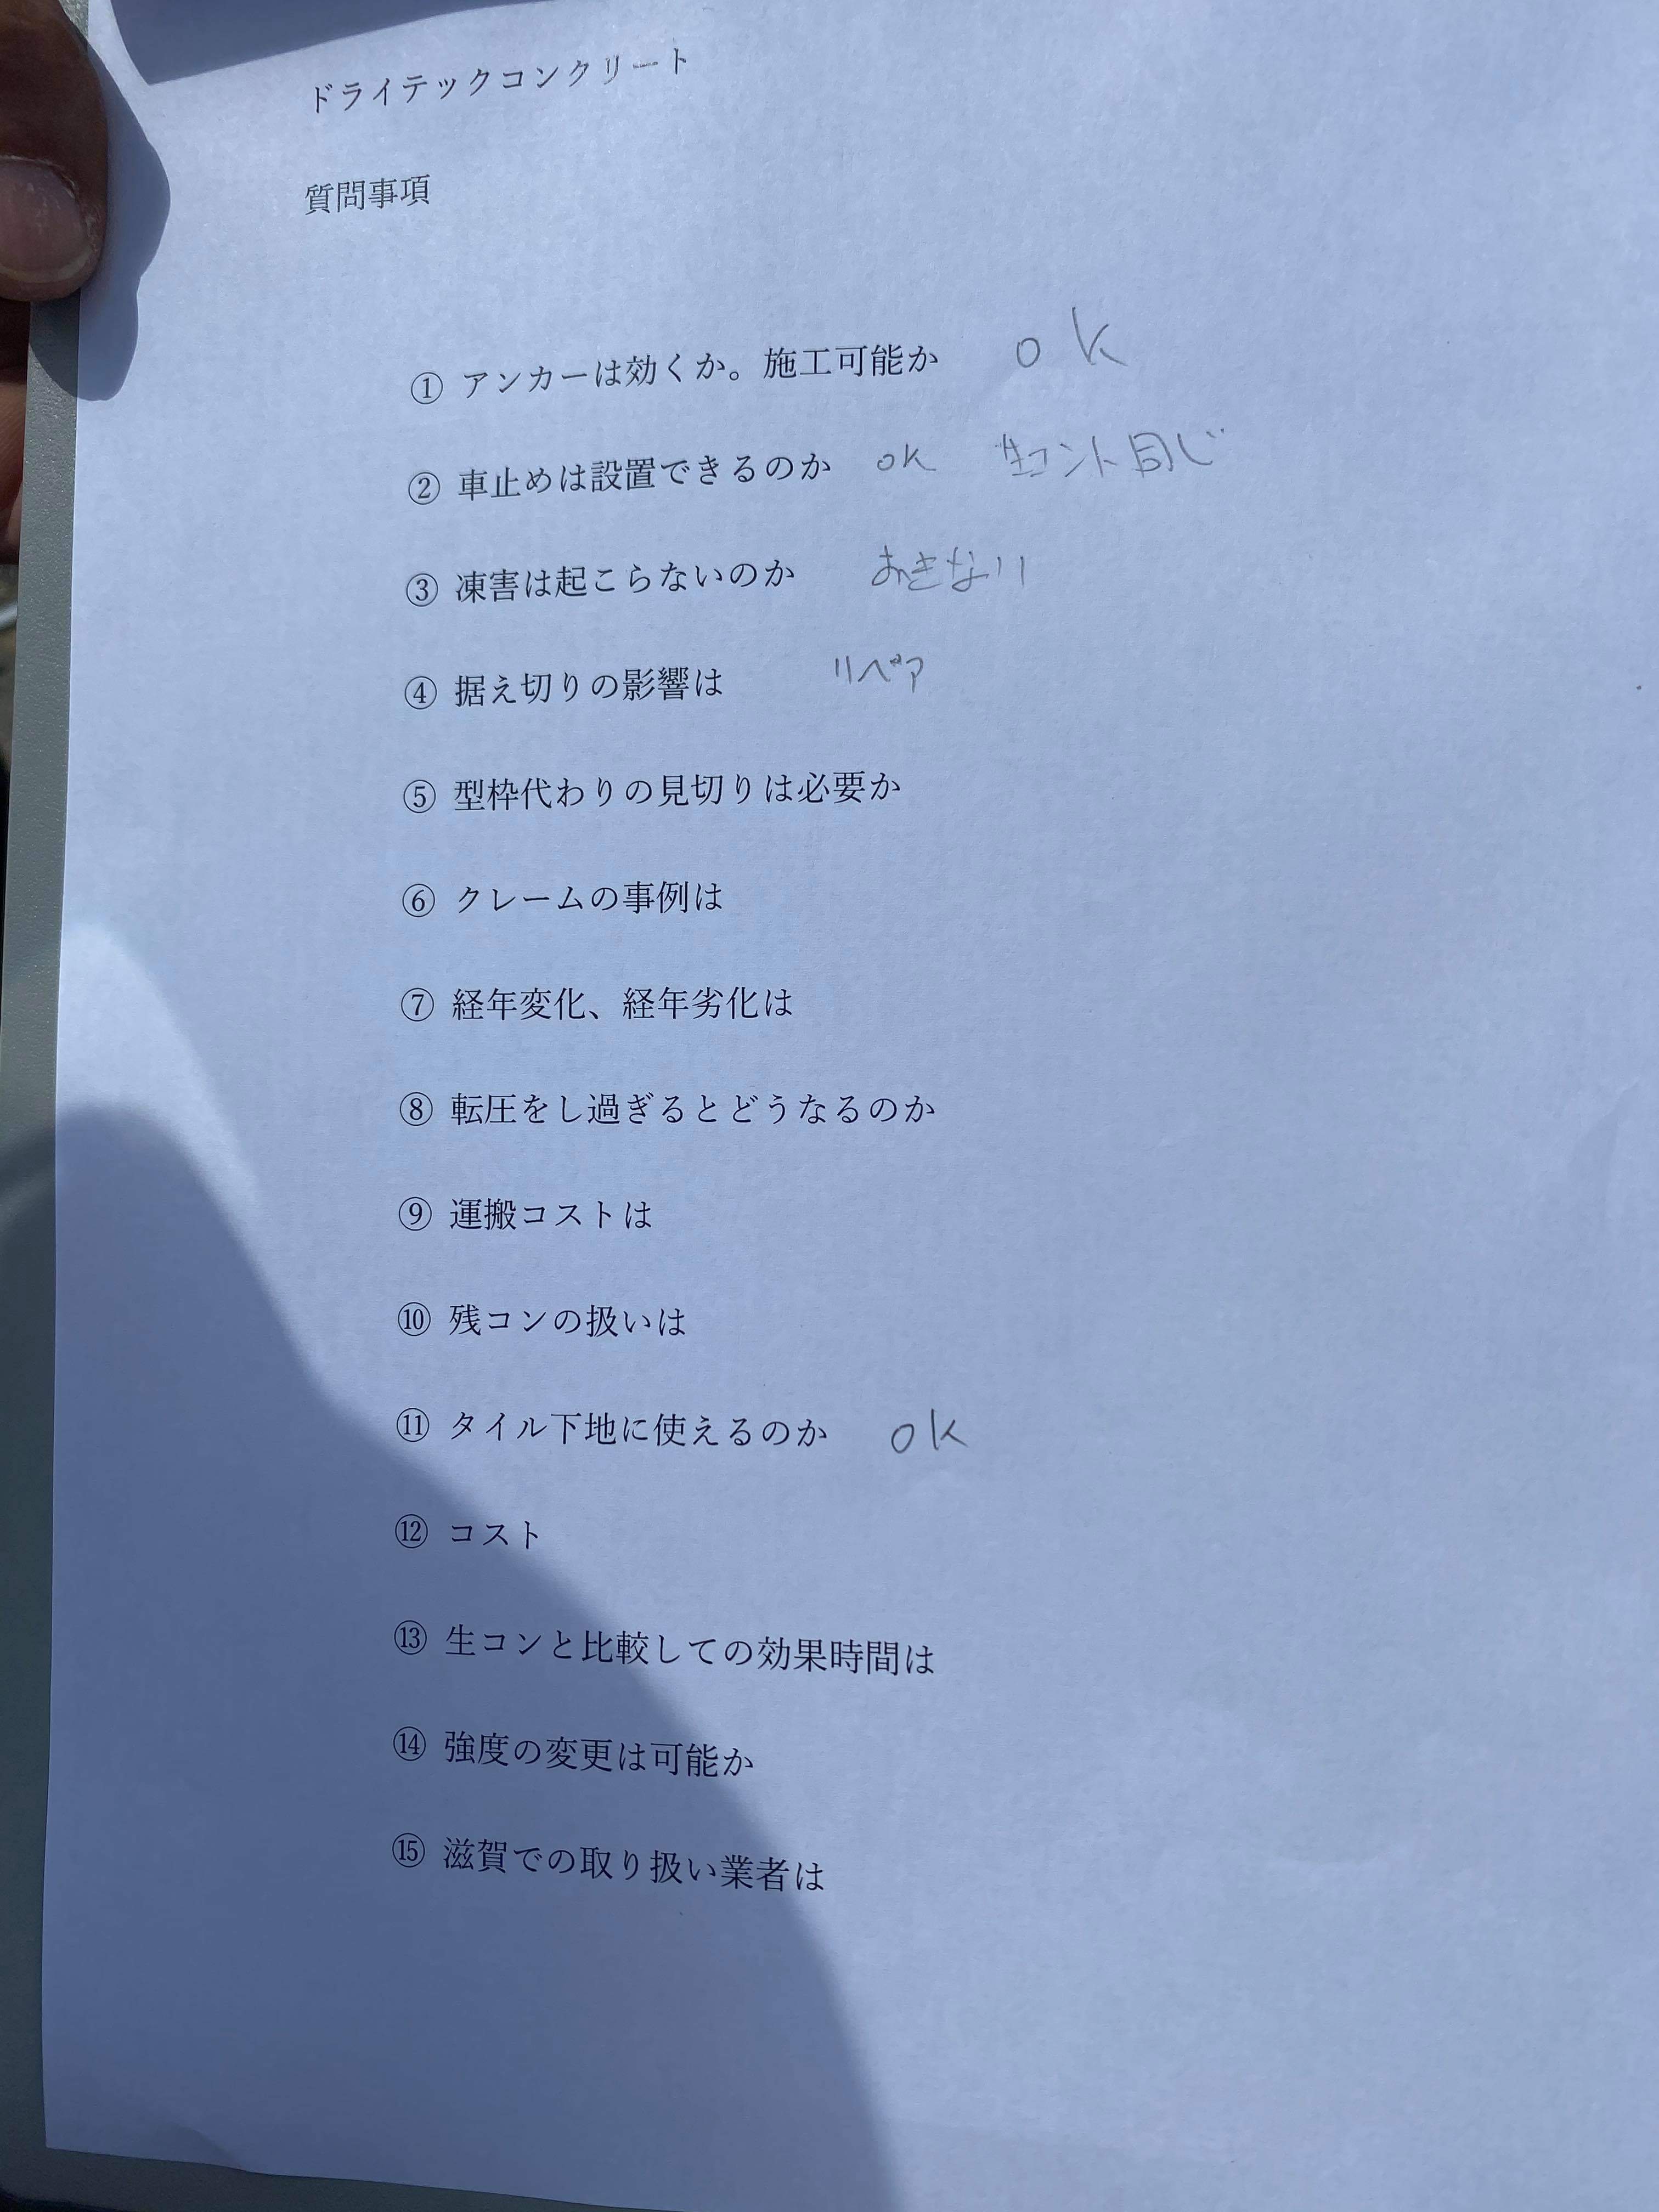 ドライテックコンクリート
質問事項
① アンカーは効くか。施工可能か ok
② 車止めは設置できるのか ok 生コント同じ
③ 凍害は起こらないのか おきない
④ 据え切りの影響は リペア
⑤ 型枠代わりの見切りは必要か
⑥ クレームの事例は
⑦ 経年変化、経年劣化は
⑧ 転圧をし過ぎるとどうなるのか
⑨ 運搬コストは
⑩ 残コンの扱いは
⑪ タイル下地に使えるのか ok
⑫ コスト
⑬ 生コンと比較しての効果時間は
⑭ 強度の変更は可能か
⑮ 滋賀での取り扱い業者は